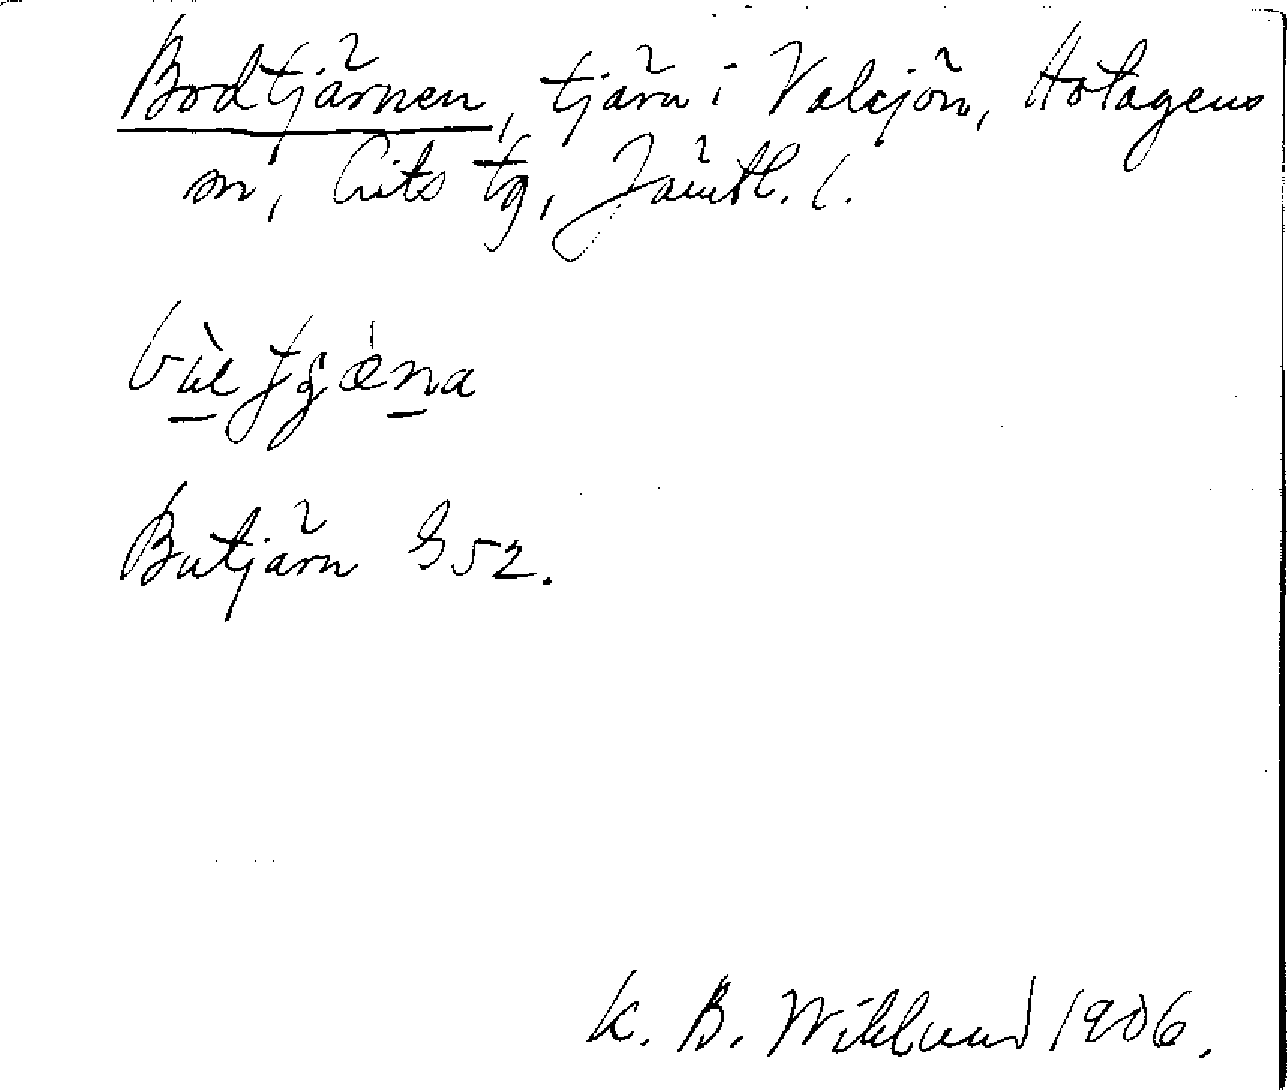 Bodtjärnen, tjärn i Valsjön, Hotagens
sn, Lits tg, Jämtl. l.
Butjärn G52.
K. B. Wiklund 1906.